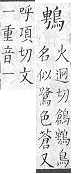 火迥切鳥
名似鷺色蒼又
呼項切文
一重音一